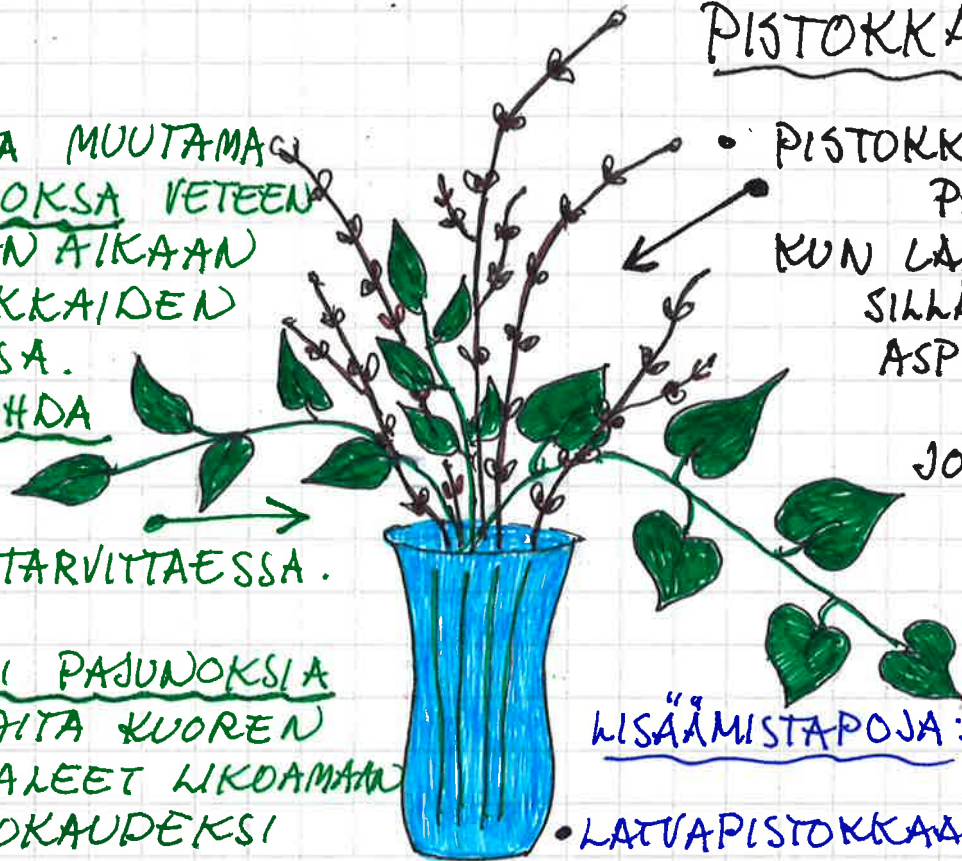 PISTOKKA
A MUUTAMA
OKSA VETEEN
N AIKAAN
KKAIDEN
SA.
HDA
TARVITTAESSA.
I PAJUNOKSIA
AITA KUOREN
ALEET LIKOAMAAN
OKAUDEKSI
• PISTOKK
P
KUN LA
SILLÄ
ASP
JO
LISÄÄMISTAPOJA:
• LATVAPISTOKKAA